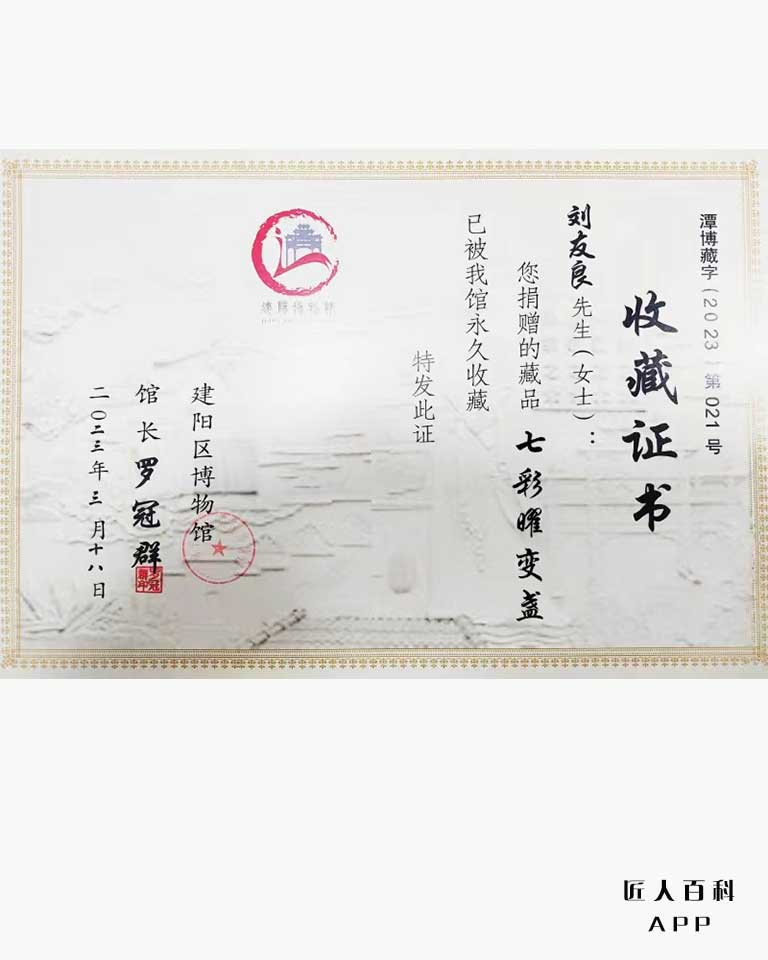 潭博藏字(2023)第021号
收藏证书
刘友良先生(女士):
您捐赠的藏品 七彩曜变盏
已被我馆永久收藏
特发此证
建阳博物馆
建阳区博物馆
馆长 罗冠群
二〇二三年三月十八日
匠人百科
APP